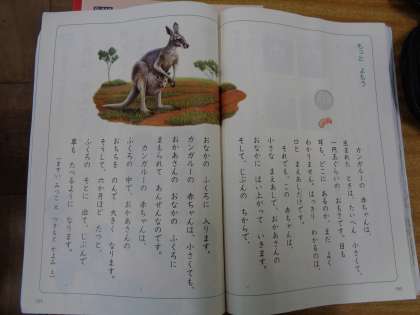 もっと よもう
カンガルーの 赤ちゃんは、
生まれた ときは、たいへん 小さくて、
一円玉ぐらいの おもさです。目も
耳も、どこに あるのか、まだ よく
わかりません。はっきり わかるのは、
口と まえあしだけです。
それでも、この 赤ちゃんは、
小さな まえあしで、おかあさんの
おなかに はい上がって いきます。
そして、じぶんの 力で、
おなかの ふくろに 入ります。
カンガルーの 赤ちゃんは、小さくても、
おかあさんの おなかの ふくろに
まもられて あんぜんなのです。
カンガルーの 赤ちゃんは、
ふくろの 中で、おかあさんの
おちちを のんで 大きく なります。
そうして、六か月ほど たつと、
ふくろの そとに 出て、じぶんで
草も たべるように なります。